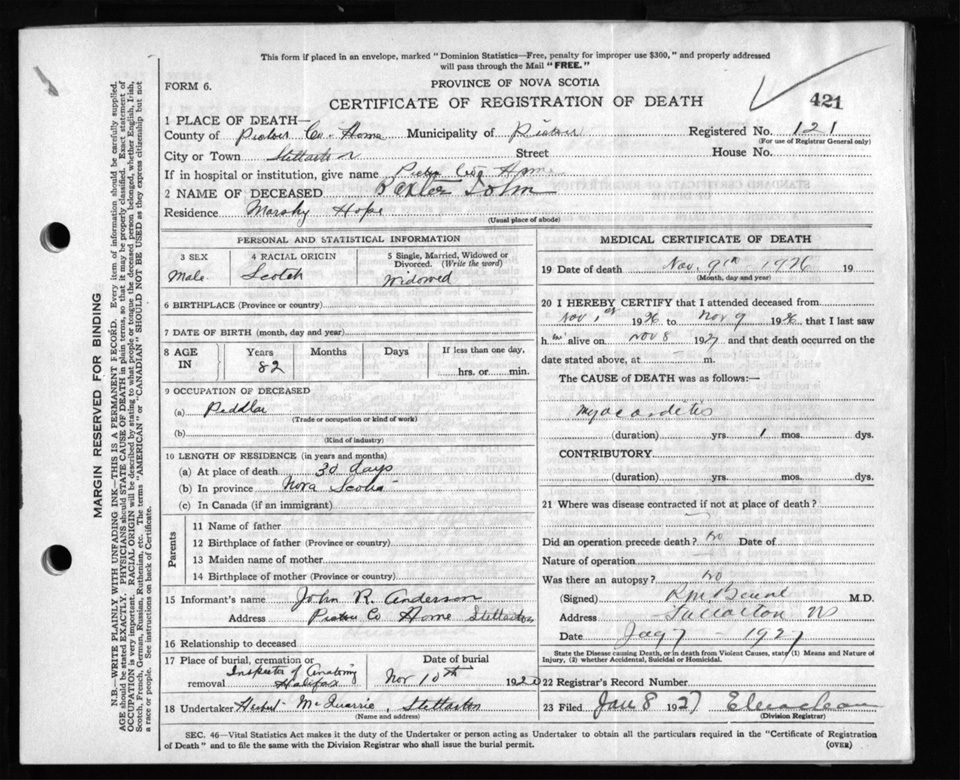 This form if placed in an envelope, marked "Dominion Statistics—Free, penalty for improper use $300," and properly addressed
will pass through the Mail "FREE."
FORM 6.
PROVINCE OF NOVA SCOTIA
CERTIFICATE OF REGISTRATION OF DEATH
421
1 PLACE OF DEATH—
County of Pictou Co. Home Municipality of Pictou Registered No. 121
(For use of Registrar General only)
City or Town Stellarton Street House No.
If in hospital or institution, give name Pictou Co Home
2 NAME OF DECEASED John
Residence Marshy Hope
(Usual place of abode)
PERSONAL AND STATISTICAL INFORMATION
3 SEX 4 RACIAL ORIGIN 5 Single, Married, Widowed or
Divorced. (Write the word)
Male Scotch Widowed
6 BIRTHPLACE (Province or country)
7 DATE OF BIRTH (month, day and year)
8 AGE IN Years Months Days If less than one day,
82 hrs. or min.
9 OCCUPATION OF DECEASED
(a) Peddlar
(Trade or occupation or kind of work)
(b)
(Kind of industry)
10 LENGTH OF RESIDENCE (in years and months)
(a) At place of death 30 days
(b) In province Nova Scotia
(c) In Canada (if an immigrant)
Parents
11 Name of father
12 Birthplace of father (Province or country)
13 Maiden name of mother
14 Birthplace of mother (Province or country)
15 Informant's name John R. Anderson
Address Pictou Co Home Stellarton
16 Relationship to deceased
17 Place of burial, cremation or
removal Inspector of Anatomy
Halifax
Date of burial
Nov 10th 192
18 Undertaker McQuarrie, Stellarton
(Name and address)
MEDICAL CERTIFICATE OF DEATH
19 Date of death Nov. 9th 1926 19
(Month, day and year)
20 I HEREBY CERTIFY that I attended deceased from
Nov 1st 1926 to Nov 9 1926 that I last saw
him alive on Nov 8 192 and that death occurred on the
date stated above, at m.
The CAUSE OF DEATH was as follows:—
Myocarditis
(duration) yrs. 1 mos. dys.
CONTRIBUTORY
(duration) yrs. mos. dys.
21 Where was disease contracted if not at place of death?
Did an operation precede death? no Date of
Nature of operation
Was there an autopsy? no
(Signed) M.D.
Address
Date Jan 7 - 1927
State the Disease causing Death, or in death from Violent Causes, state (1) Means and Nature of
Injury, (2) whether Accidental, Suicidal or Homicidal.
22 Registrar's Record Number
23 Filed Jan 8 1927
(Division Registrar)
SEC. 46—Vital Statistics Act makes it the duty of the Undertaker or person acting as Undertaker to obtain all the particulars required in the "Certificate of Registration
of Death" and to file the same with the Division Registrar who shall issue the burial permit.
(OVER)
MARGIN RESERVED FOR BINDING
N.B.—WRITE PLAINLY WITH UNFADING INK—THIS IS A PERMANENT RECORD. Every item of information should be carefully supplied.
AGE should be stated EXACTLY. PHYSICIANS should STATE CAUSE OF DEATH in plain terms, so that it may be properly classified. Exact statement of
OCCUPATION is very important. RACIAL ORIGIN will be described by stating to what people or tongue the deceased person belonged, whether English, Irish,
Scotch, French, German, Russian, Ruthenian, etc. The terms "AMERICAN" or "CANADIAN" SHOULD NOT BE USED as they express citizenship but not
a race or people. See instructions on back of Certificate.